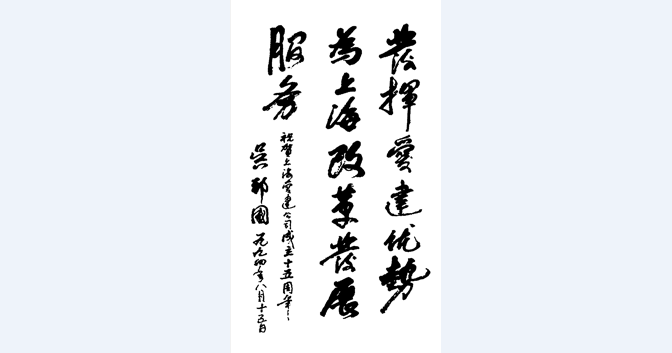 發揮愛建优勢
為上海改革發展
服务
祝贺上海爱建公司成立十五周年
吴邦國 一九九四年八月十五日